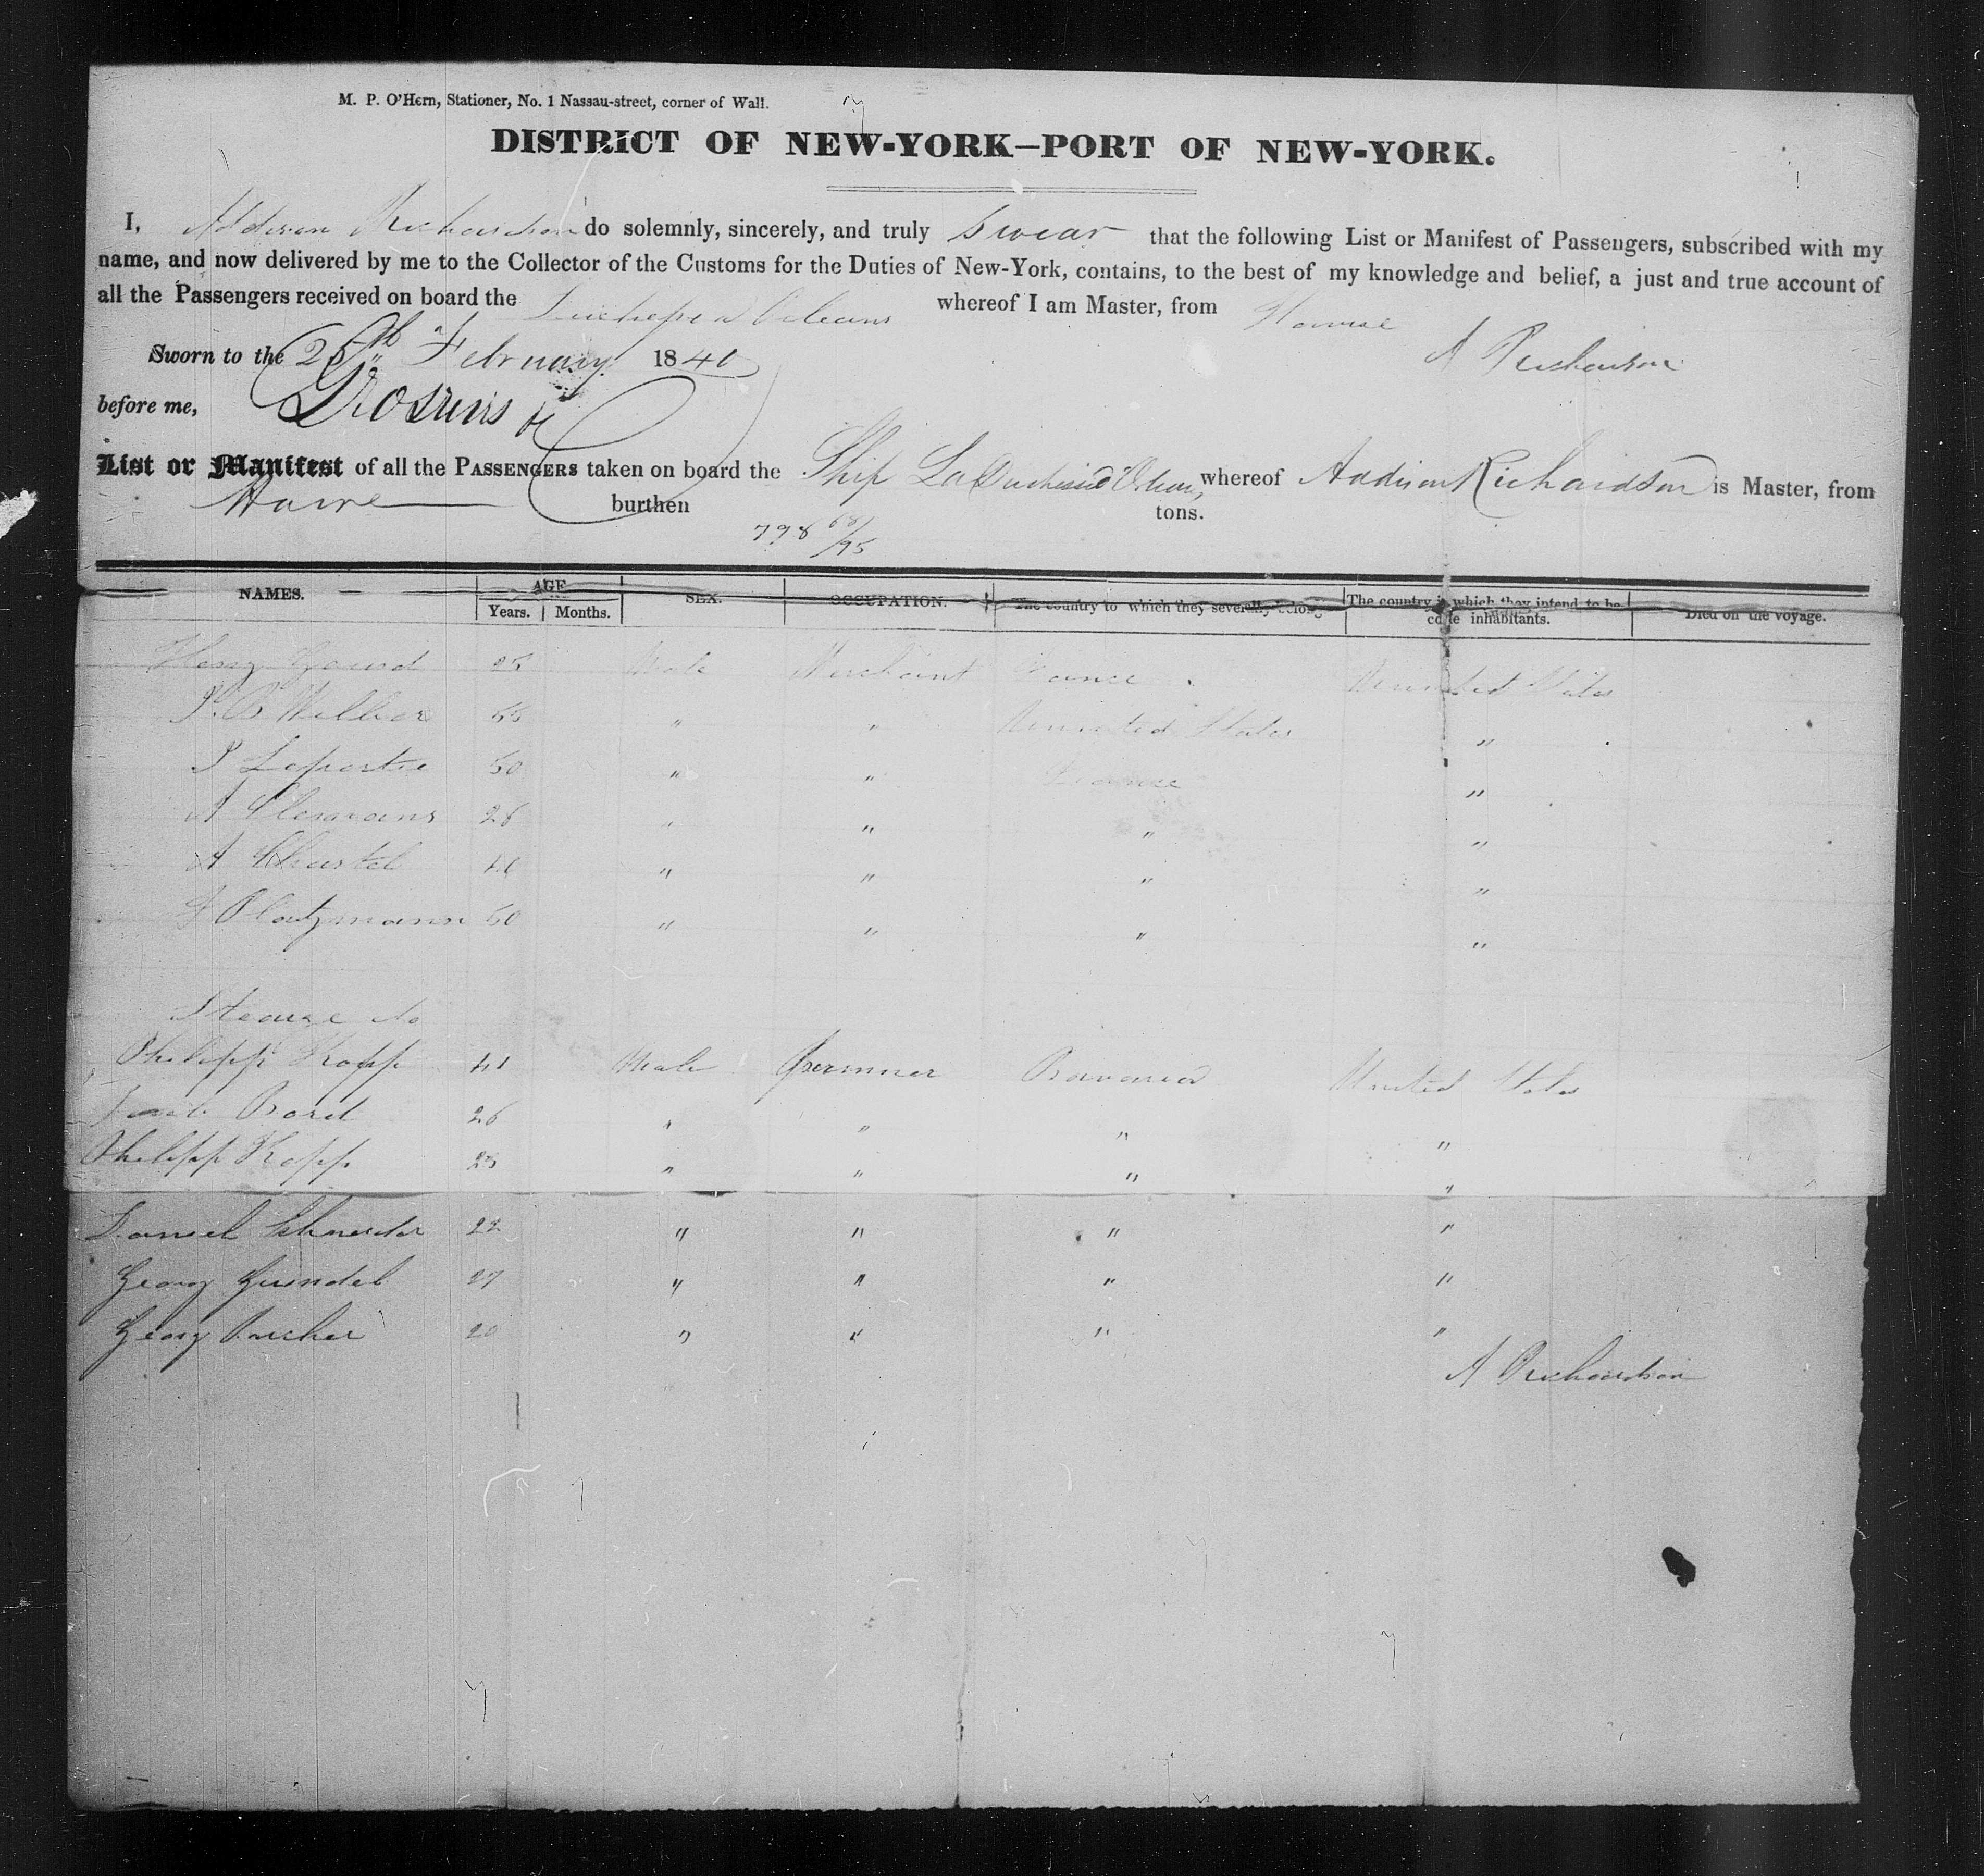 M. P. O'Hern, Stationer, No. 1 Nassau-street, corner of Wall.
DISTRICT OF NEW-YORK—PORT OF NEW-YORK.
I, Addison Richardson do solemnly, sincerely, and truly swear that the following List or Manifest of Passengers, subscribed with my
name, and now delivered by me to the Collector of the Customs for the Duties of New-York, contains, to the best of my knowledge and belief, a just and true account of
all the Passengers received on board the Orleans whereof I am Master, from Havre
Sworn to the 25th February 1840 A Richardson
before me,
List or Manifest of all the PASSENGERS taken on board the Ship La Duchesse d'Orleans, whereof Addison Richardson is Master, from
Havre burthen tons.
798 68/95
NAMES. AGE SEX. OCCUPATION. The country to which they severally belong The country in which they intend to be- Died on the voyage.
Years. Months. come inhabitants.
25 Male Merchant France States
55 " " States "
P Laporte 50 " " France "
A 28 " " " "
A Chastel 40 " " " "
50 " " " "
Philipp Kopp 41 Male Bavaria United States
26 " " " "
Philipp Kopp 23 " " " "
Daniel Schneider 22 " " " "
Georg Gundel 27 " " " "
Georg 20 " " " "
A Richardson